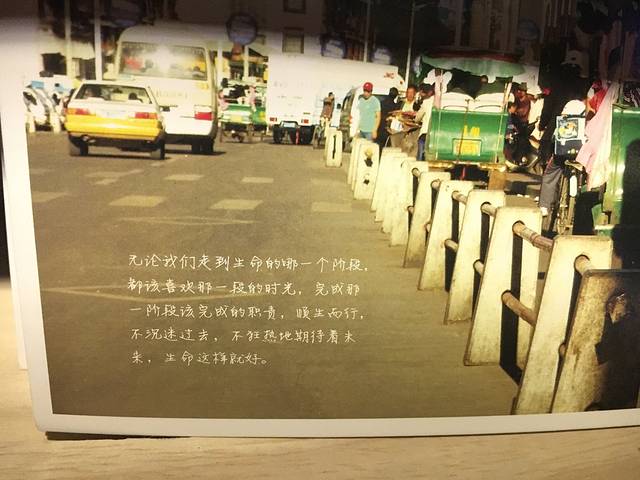 无论我们走到生命的哪一个阶段，
都该喜欢那一段的时光，完成那
一阶段该完成的职责，顺生而行，
不沉迷过去，不狂热地期待着未
来，生命这样就好。